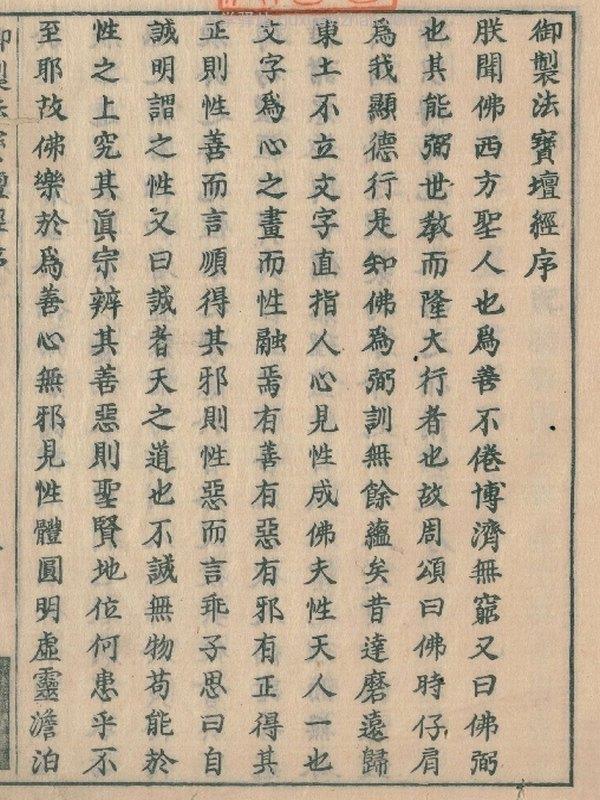 御製法寶壇經序
朕聞佛西方聖人也爲善不倦博濟無窮又曰佛弼
也其能弼世敎而隆大行者也故周頌曰佛時仔肩
爲我顯德行是知佛爲弼訓無餘蘊矣昔達磨遠歸
東土不立文字直指人心見性成佛夫性天人一也
文字爲心之畫而性融焉有善有惡有邪有正得其
正則性善而言順得其邪則性惡而言乖子思曰自
誠明謂之性又曰誠者天之道也不誠無物苟能於
性之上究其眞宗辨其善惡則聖賢地位何患乎不
至耶故佛樂於爲善心無邪見性體圓明虛靈澹泊